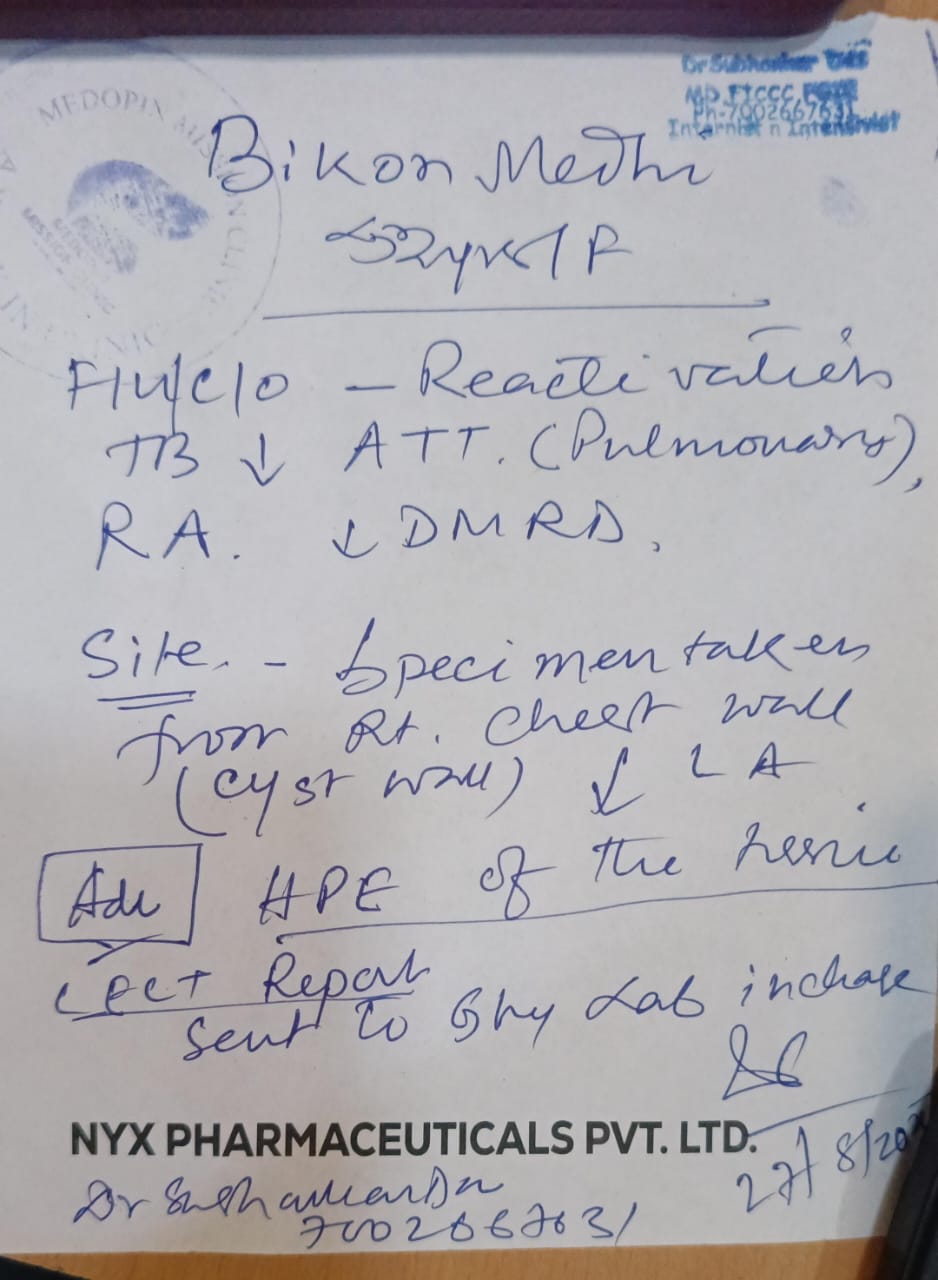 MEDOPIA MISSION CLINIC
Dr Subhankar Das
MD FICCC
Ph-7002667631
Internist n Intensivist
Bikon Medhi
F
H/o - Reactivation
TB ↓ ATT. (Pulmonary),
RA. ↓ DMRD.
Site. - Specimen taken
from Rt. Chest wall
(cyst wall) ↓ LA
Adv HPE of the
CECT Report
Sent to Ghy Lab
NYX PHARMACEUTICALS PVT. LTD.
27/8/20
Dr Subhankar Das
7002667631